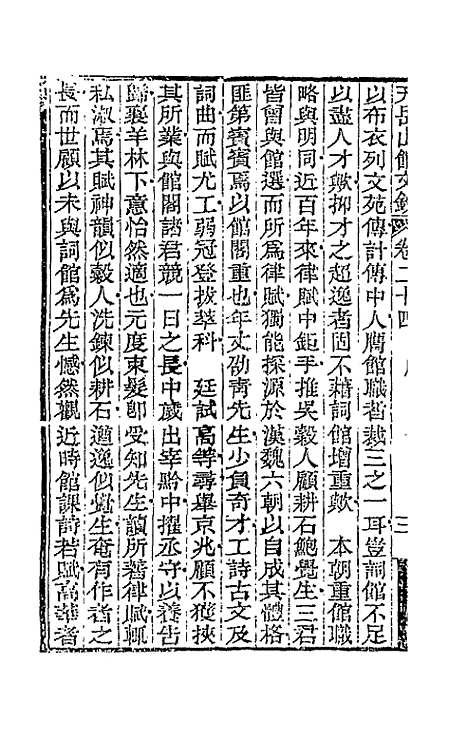 天岳山館文鈔 卷二十四 序 三
以布衣列文苑傳計傳中人膺館職者裁三之一耳豈詞館不足
以盡人才歟抑才之超逸者固不藉詞館增重歟 本朝重館職
略與明同近百年來律賦中鉅手推吳穀人顧耕石鮑覺生三君
皆嘗與館選而所為律賦獨能探源於漢魏六朝以自成其體格
匪第賓賓焉以館閣重也年丈劭青先生少負奇才工詩古文及
詞曲而賦尤工弱冠登拔萃科 廷試高等尋舉京兆顧不獲挾
其所業與館閣諸君競一日之長中歲出宰黔中擢丞守以養告
歸褻羊林下意怡然適也元度束髮卽受知先生讀所著律賦輒
私淑焉其賦神韻似穀人洗鍊似耕石遒逸似覺生奄有作者之
長而世顧以未與詞館為先生憾然觀近時館課詩若賦高華者